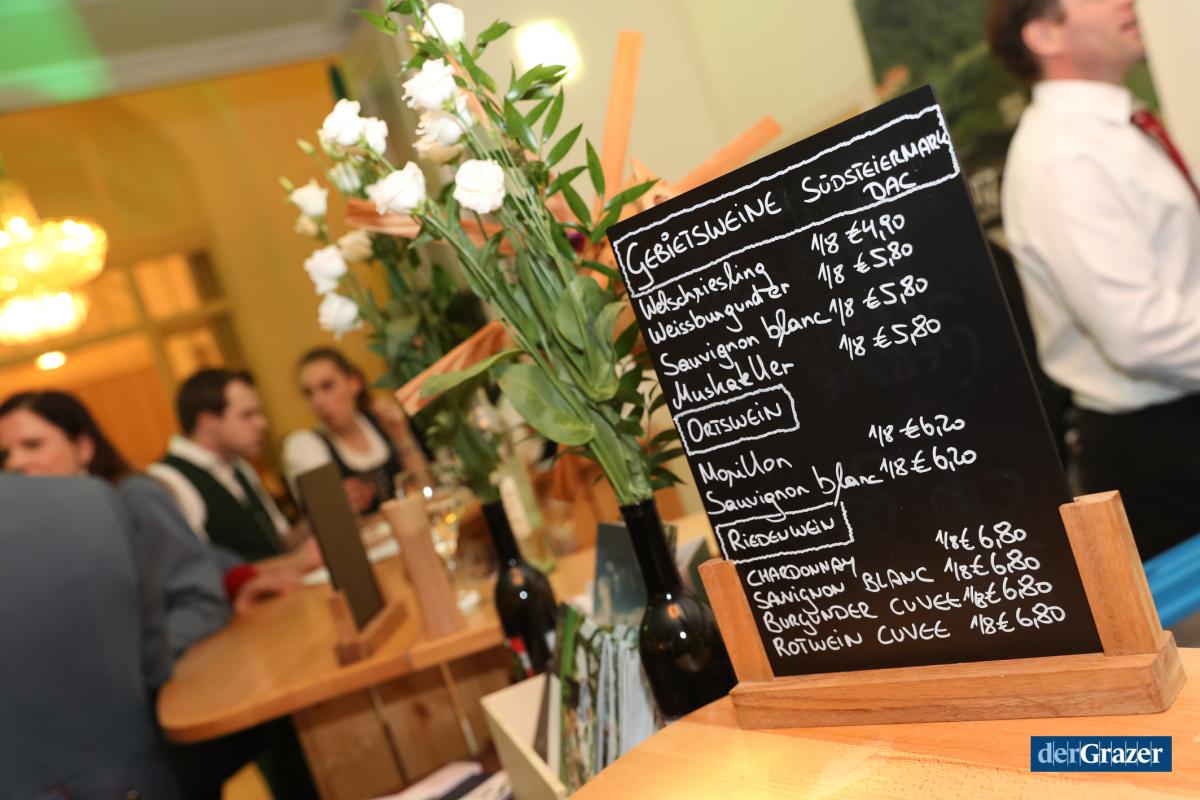 GEBIETSWEINE SÜDSTEIERMARK
DAC
Welschriesling 1/8 €4,90
Weissburgunder 1/8 €5,80
Sauvignon blanc 1/8 €5,80
Muskateller 1/8 €5,80
ORTSWEIN
Morillon 1/8 €6,20
Sauvignon blanc 1/8 €6,20
RIEDENWEIN
CHARDONNAY 1/8 € 6,80
SAVIGNON BLANC 1/8 € 6,80
BURGUNDER CUVEE 1/8 € 6,80
ROTWEIN CUVEE 1/8 € 6,80
derGrazer